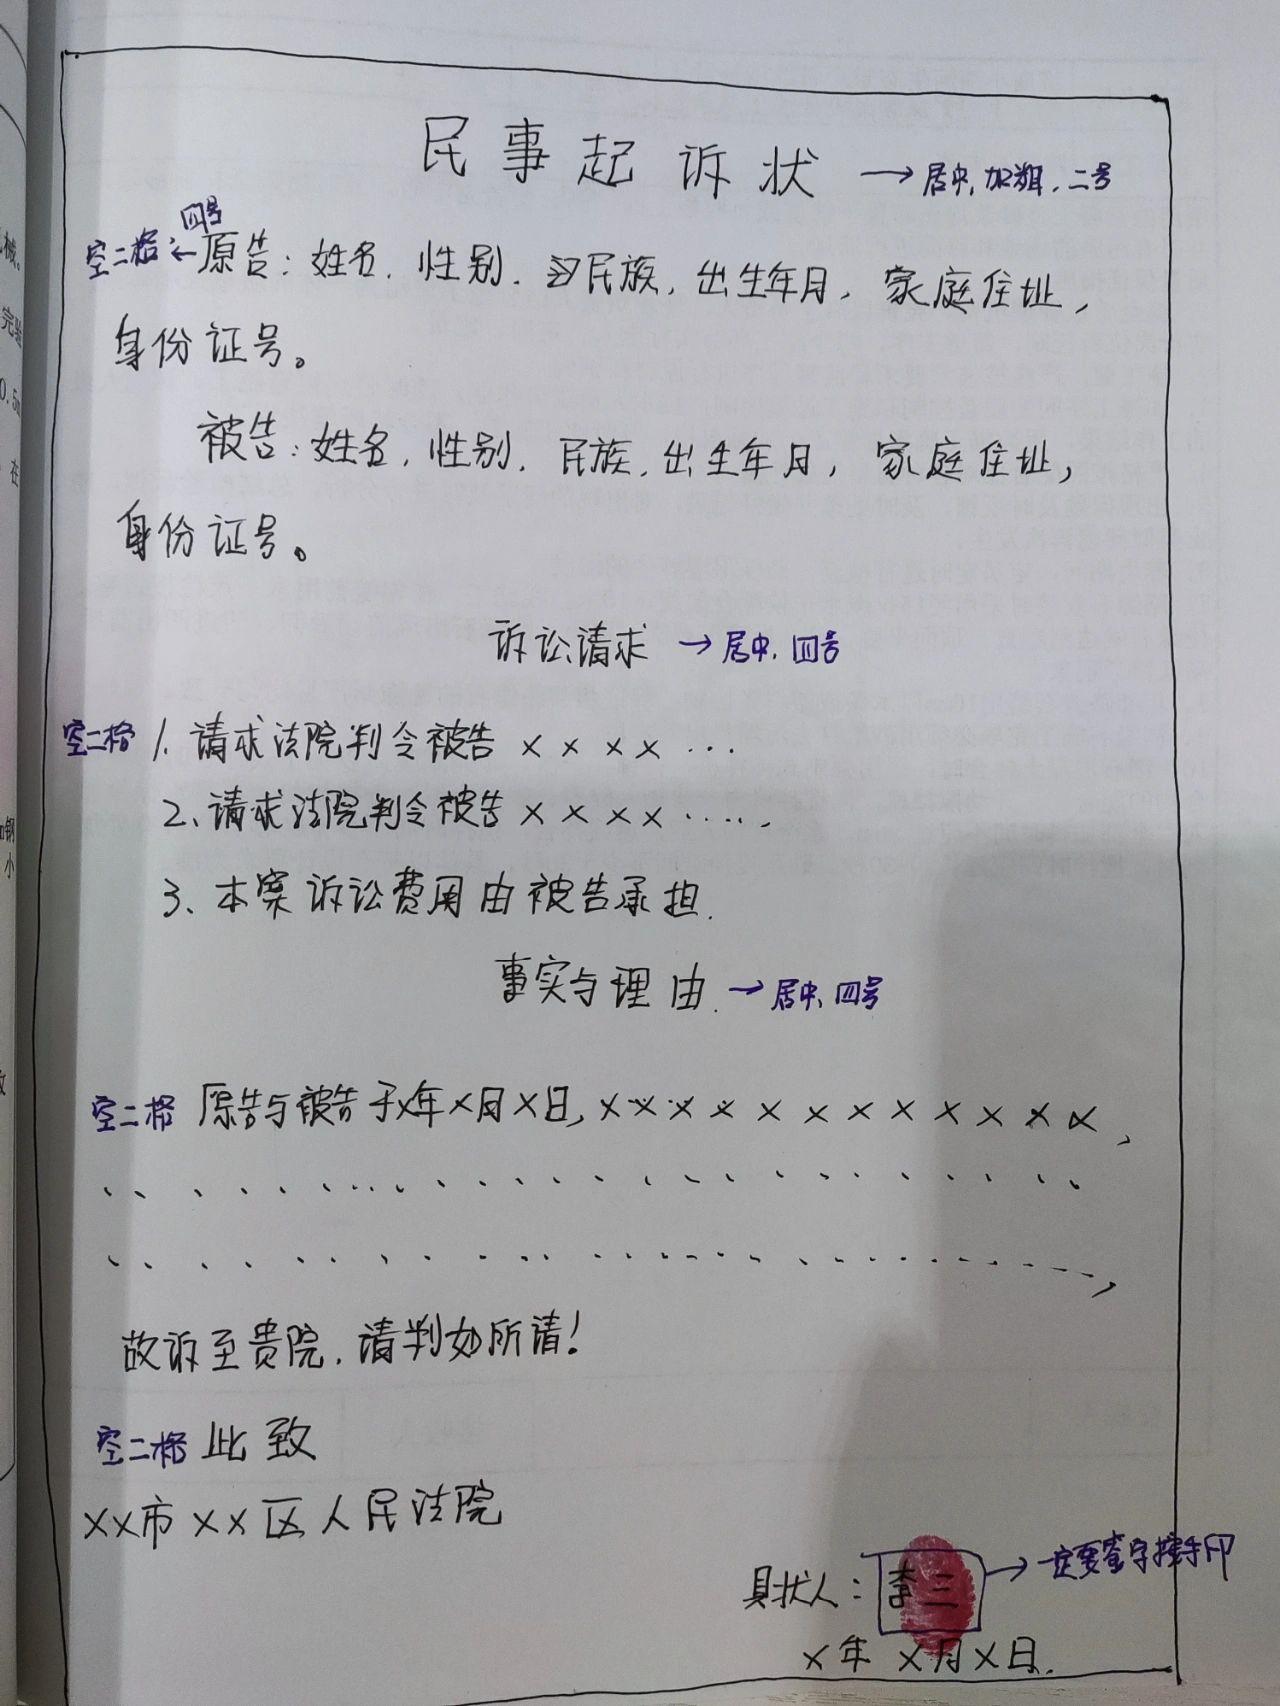 民事起诉状 → 居中,加粗,二号
四号
空二格 ← 原告:姓名,性别,民族,出生年月,家庭住址,
身份证号。
被告:姓名,性别,民族,出生年月,家庭住址,
身份证号。
诉讼请求 → 居中,四号
空二格 1、请求法院判令被告××××...
2、请求法院判令被告××××.....
3、本案诉讼费用由被告承担.
事实与理由. → 居中,四号
空二格 原告与被告于×年×月×日,××××××××××××,
故诉至贵院,请判如所请!
空二格 此致
××市××区人民法院
具状人:李三 → 一定要签字按手印
×年×月×日.